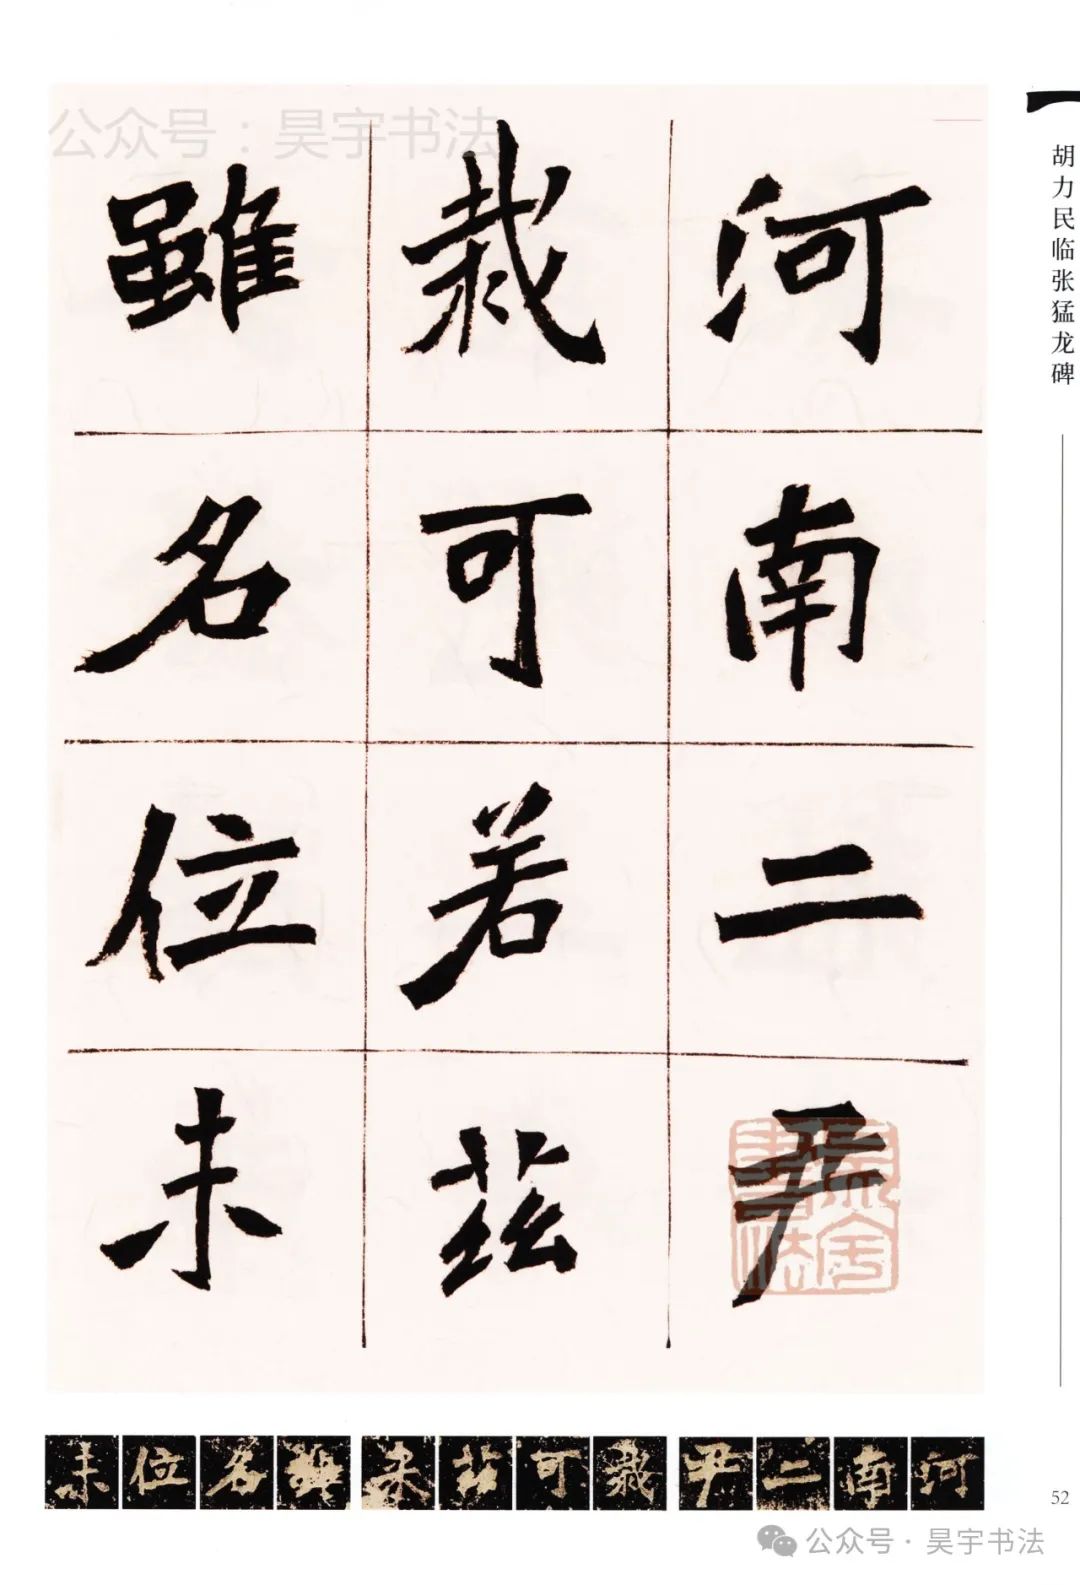 公众号：昊宇书法
胡力民临张猛龙碑
河南二尹
裁可若茲
雖名位未
河南二尹
裁可茲
名位未
52
公众号·昊宇书法